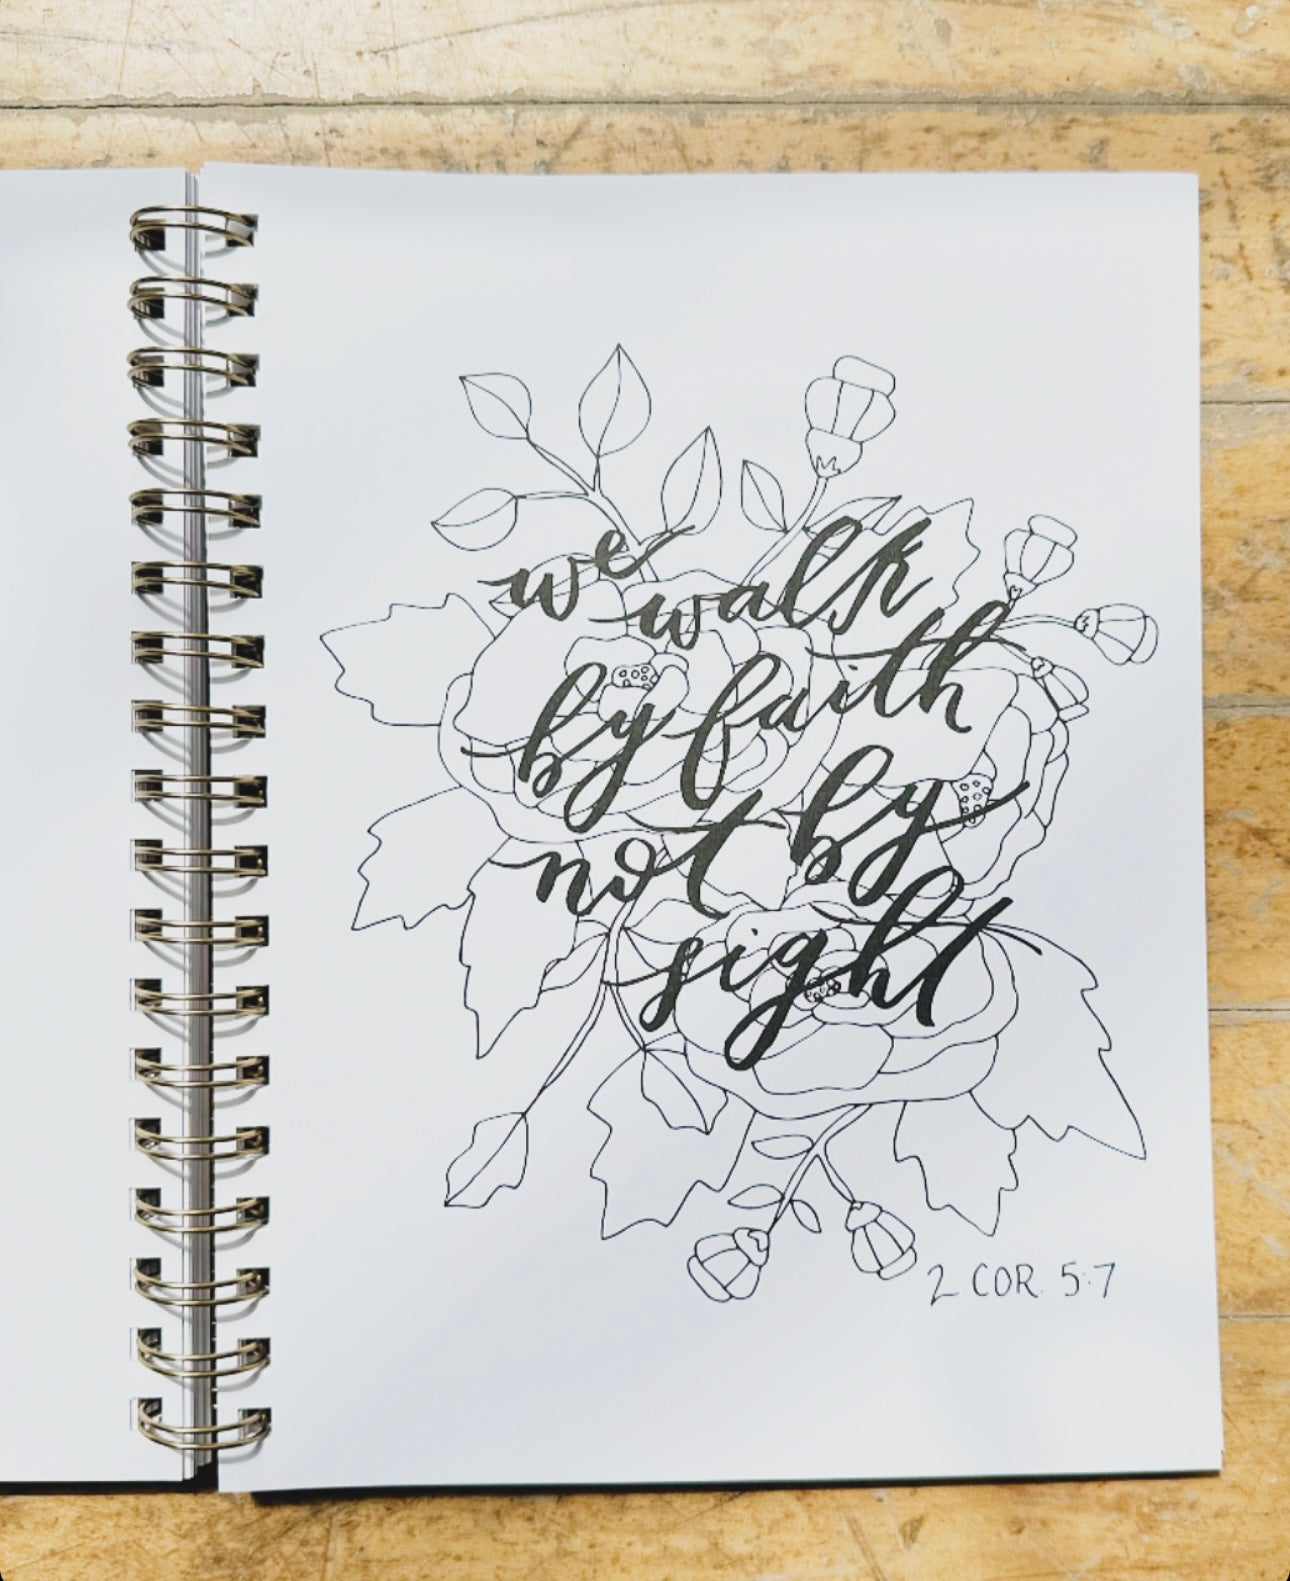 we walk
by faith
not by
sight
2 COR. 5:7